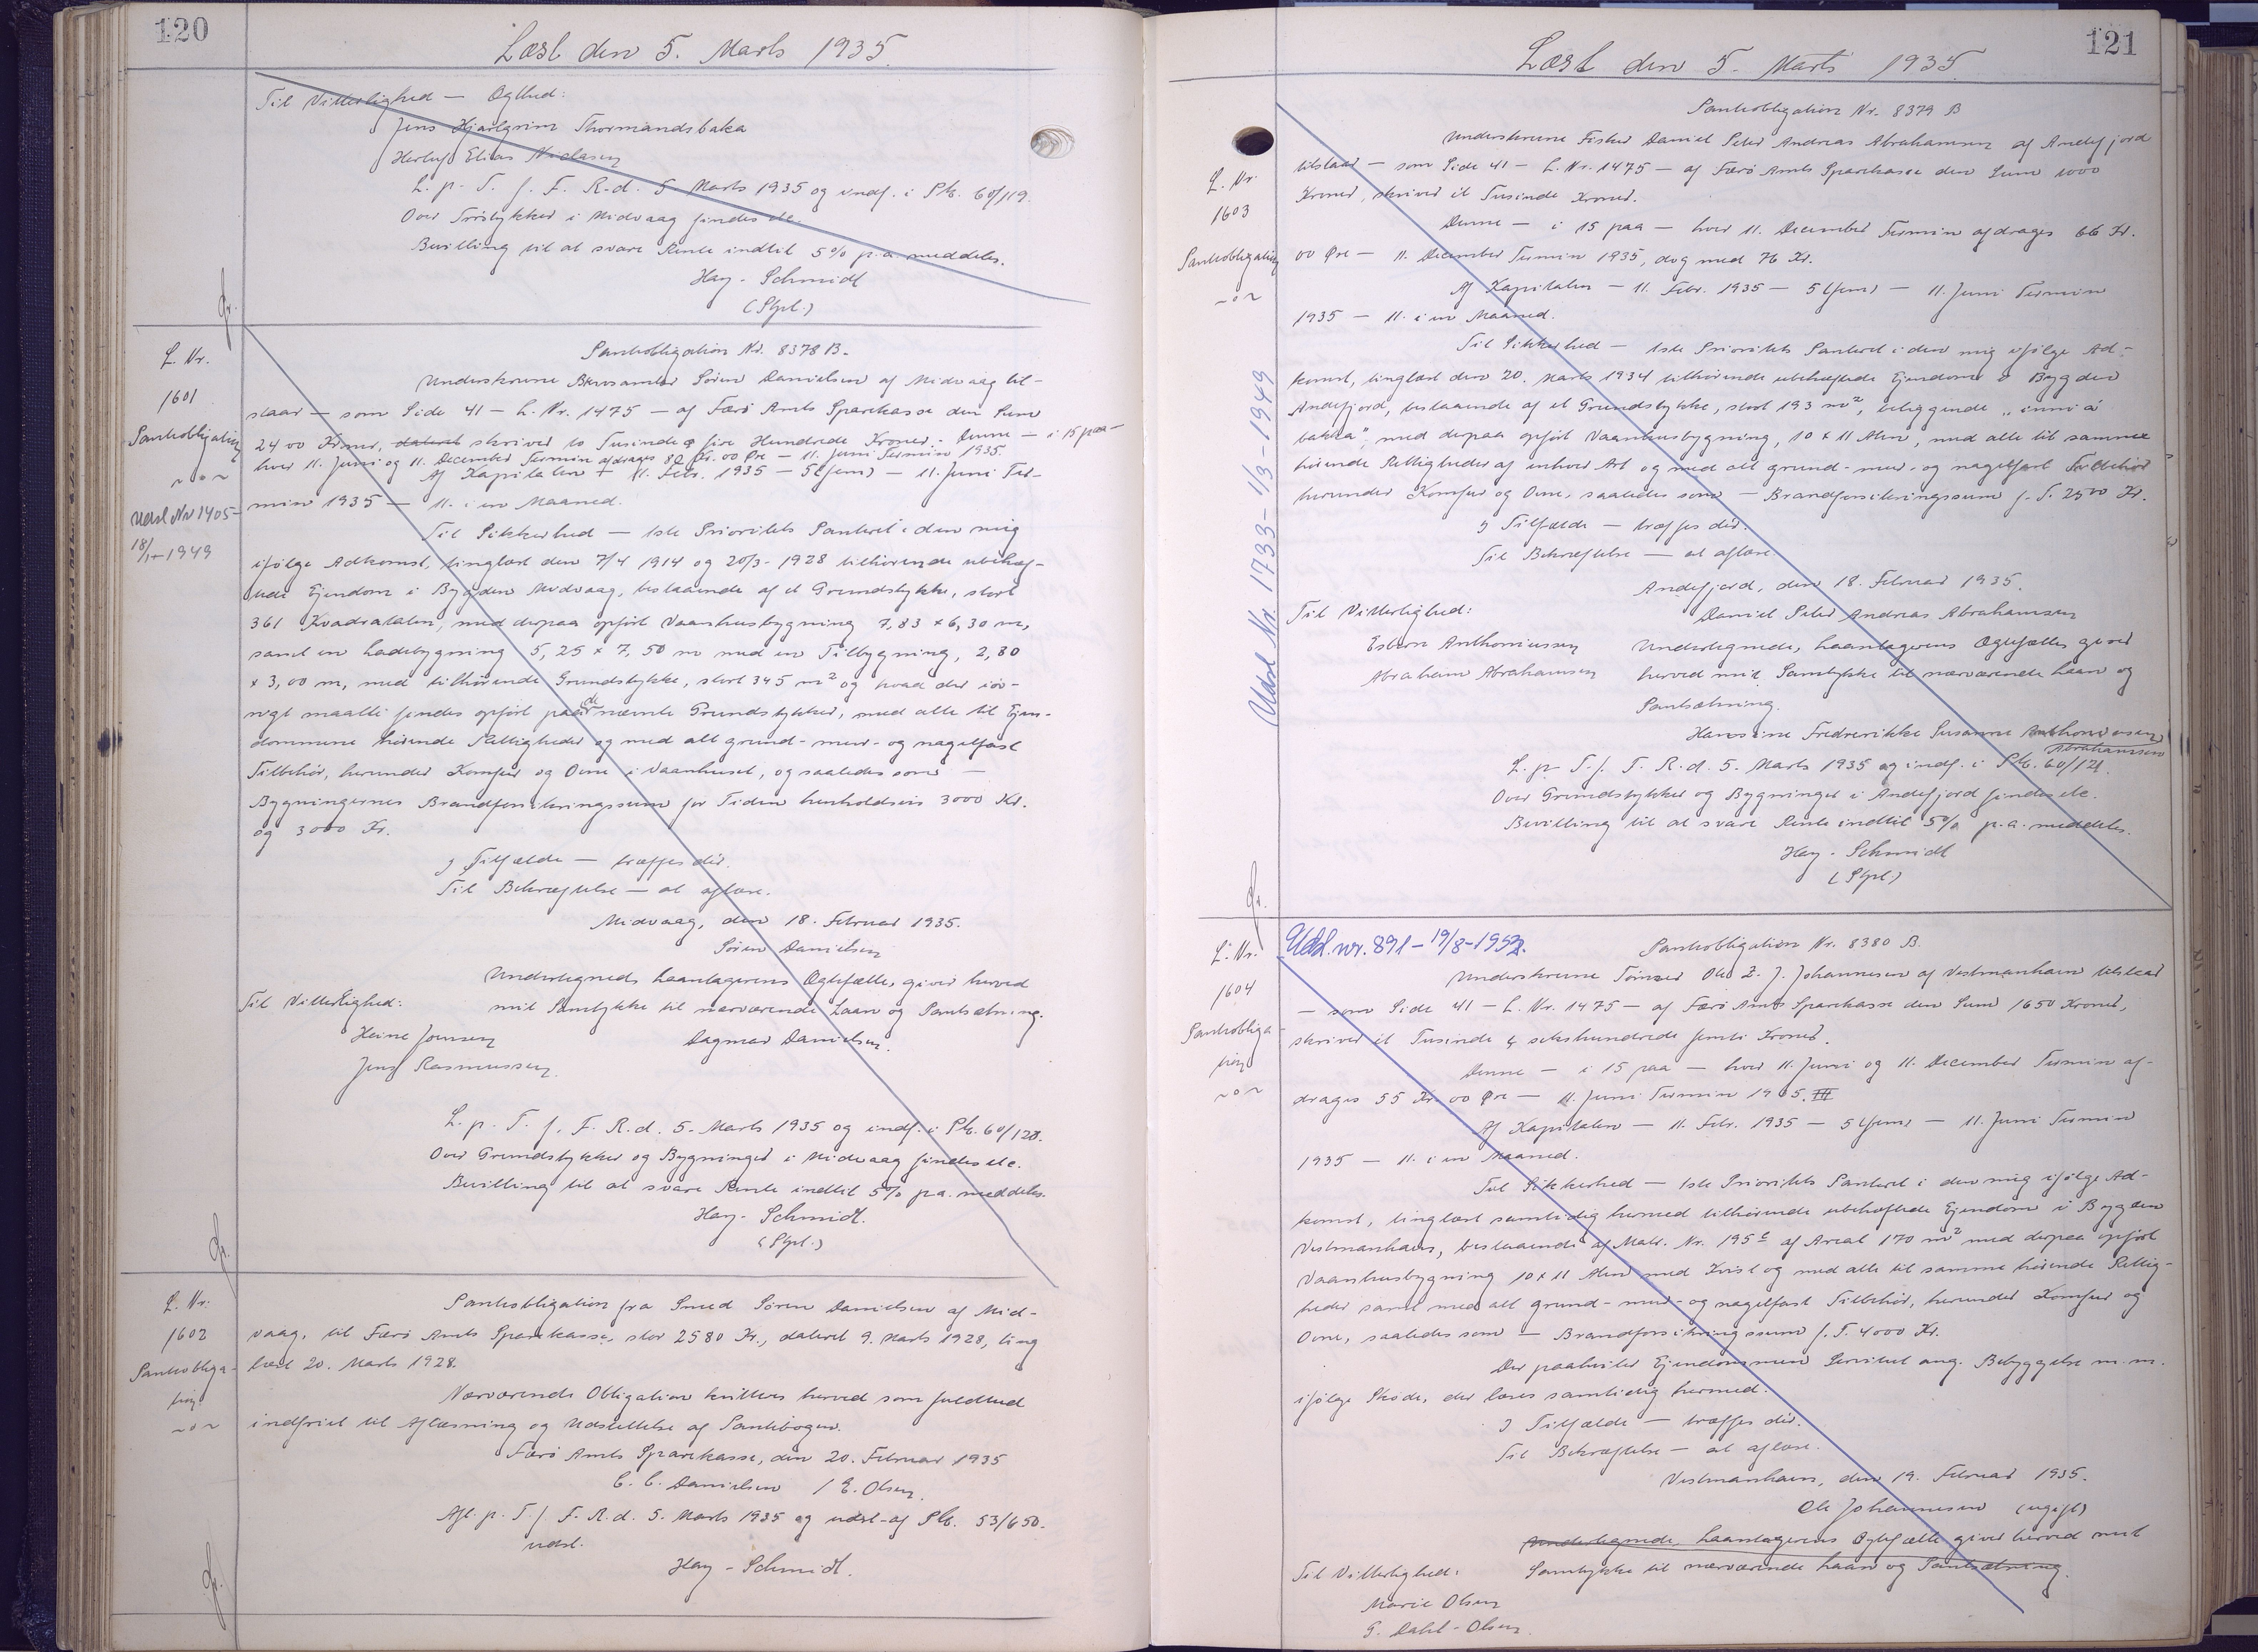 120
Læst den 5. Marts 1935.
Til Vitterlighed — Ægthed:
Jens Hjartgrim Thormandsbaka
Herluf Elias Niclasen
L. p. T. f. F. R. d. 5. Marts 1935 og indf. i Ptb. 60/119.
Over Tørstykker i Midvaag findes etc.
Bevilling til at svare Rente indtil 5% p.a. meddeles.
Hay-Schmidt
(Stpl.)
L. Nr.
1601
Pantobligation
~o~
Udsl Nr 1405-
18/1-1949
Pantobligation Nr. 8378 B.
Underskrevne Søren Danielsen af Midvaag til-
staar — som Side 41 — L. Nr. 1475 — af Færø Amts Sparekasse den Sum
2400 Kroner, dateret skriver to Tusinde & fire Hundrede Kroner. Denne — i 15 paa —
hver 11. Juni og 11. December Termin afdrages 80 Kr. 00 Øre — 11. Juni Termin 1935.
Af Kapitalen — 11. Febr. 1935 — 5 (fem) — 11. Juni Ter-
min 1935 — 11. i en Maaned.
Til Sikkerhed — 1ste Prioritets Panteret i den mig
ifølge Adkomst, tinglæst den 7/4 1914 og 20/3-1928 tilhørende ubehæf-
tede Ejendom i Bygden Midvaag, bestaaende af et Grundstykke, stort
361 Kvadratalen, med derpaa opført Vaaningsbygning 7,83 x 6,30 m,
samt en Ladebygning 5,25 x 7,50 m med en Tilbygning, 2,80
x 3,00 m, med tilhørende Grundstykke, stort 345 m² og hvad der iøv-
rigt maatte findes opført paa de nævnte Grundstykker, med alle til Ejen-
dommene hørende Rettigheder og med alt grund- mur- og nagelfast
Tilbehør, herunder Komfur og Ovne i Vaanhuset, og saaledes som —
Bygningernes Brandforsikringssum for Tiden henholdsvis 3000 Kr.
og 3000 Kr.
I Tilfælde — træffes der.
Til Bekræftelse — at aflæse.
Midvaag, den 18. Februar 1935.
Søren Danielsen
Undertegnede Laantagerens Ægtefælle, giver herved
Til Vitterlighed: mit Samtykke til nærværende Laan og Pantsætning.
Heine Joensen Dagmar Danielsen.
Jens Rasmussen
L. p. T. f. F. R. d. 5. Marts 1935 og indf. i Ptb. 60/120.
Over Grundstykker og Bygninger i Midvaag findes etc.
Bevilling til at svare Rente indtil 5% p.a. meddeles.
Hay-Schmidt.
(Stpl.)
L. Nr.
1602
Pantobliga-
tion
~o~
Pantobligation fra Smed Søren Danielsen af Mid-
vaag, til Færø Amts Sparekasse, stor 2580 Kr., dateret 9. Marts 1928, ting
læst 20. Marts 1928.
Nærværende Obligation kvitteres herved som fuldtud
indfriet til Aflæsning og Udslettelse af Pantebogen.
Færø Amts Sparekasse, den 20. Februar 1935
C. C. Danielsen / E. Olsen.
Afl. p. T. f. F. R. d. 5. Marts 1935 og udsl. af Ptb. 53/650.
udsl.
Hay-Schmidt.
121
Læst den 5. Marts 1935
L. Nr.
1603
Pantobligation
~o~
Udsl. Nr. 1733-1/3-1949
Pantobligation Nr. 8379 B
Underskrevne Fisker Daniel Peter Andreas Abrahamsen af Andefjord
tilstaar — som Side 41 — L. Nr. 1475 — af Færø Amts Sparekasse den Sum 1000
Kroner, skriver et Tusinde Kroner.
Denne — i 15 paa — hver 11. December Termin afdrages 66 Kr.
00 Øre — 11. December Termin 1935, dog med 76 Kr.
Af Kapitalen — 11. Febr. 1935 — 5 (fem) — 11. Juni Termin
1935 — 11. i en Maaned.
Til Sikkerhed — 1ste Prioritets Panteret i den mig ifølge Ad-
komst, tinglæst den 20. Marts 1934 tilhørende ubehæftede Ejendom i Bygden
Andefjord, bestaaende af et Grundstykke, stort 193 m², beliggende „inni á
bakka", med derpaa opført Vaanhusbygning, 10 x 11 Alen, med alle til samme
hørende Rettigheder af enhver Art og med alt grund- mur- og nagelfast Tilbehør
herunder Komfur og Ovne, saaledes som — Brandforsikringssum f. T. 2500 Kr.
I Tilfælde — træffes der.
Til Bekræftelse — at aflæse.
Andefjord, den 18. Februar 1935.
Til Vitterlighed: Daniel Peter Andreas Abrahamsen
Esbern Anthoniussen Undertegnede, Laantagerens Ægtefælle, giver
Abraham Abrahamsen herved mit Samtykke til nærværende Laan og
Pantsætning.
Hansine Fredrerikke Susanne Anthoniussen
Abrahamsen
L. p. T. f. F. R. d. 5. Marts 1935 og indf. i Ptb. 60/121.
Over Grundstykker og Bygninger i Andefjord findes etc.
Bevilling til at svare Rente indtil 5% p.a. meddeles.
Hay-Schmidt
(Stpl.)
L. Nr.
1604
Pantobliga-
tion
~o~
Udsl. nr. 891-19/8-1952.
Pantobligation Nr. 8380 B.
Underskrevne Tømrer Ole Z. J. Johannesen af Vestmanhavn tilstaar
— som Side 41 — L. Nr. 1475 — af Færø Amts Sparekasse den Sum 1650 Kroner,
skriver et Tusinde & sekshundrede femti Kroner.
Denne — i 15 paa — hver 11. Juni og 11. December Termin af-
drages 55 Kr. 00 Øre — 11. Juni Termin 1935.
Af Kapitalen — 11. Febr. 1935 — 5 (fem) — 11. Juni Termin
1935 — 11. i en Maaned.
Til Sikkerhed — 1ste Prioritets Panteret i den mig ifølge Ad-
komst, tinglæst samtidig hermed tilhørende ubehæftede Ejendom i Bygden
Vestmanhavn, bestaaende af Matr. Nr. 195c af Areal 170 m² med derpaa opført
Vaanhusbygning 10 x 11 Alen med Kvist og med alle til samme hørende Rettig-
heder samt med alt grund- mur- og nagelfast Tilbehør, herunder Komfur og
Ovne, saaledes som — Brandforsikringssum f. T. 4000 Kr.
Der paahviler Ejendommen Servitut ang. Bebyggelse m. m.
ifølge Skøde, der læses samtidig hermed.
I Tilfælde — træffes der.
Til Bekræftelse — at aflæse.
Vestmanhavn, den 19. Februar 1935.
Ole Johannesen (ugift)
Undertegnede, Laantagerens Ægtefælle giver herved mit
Til Vitterlighed: Samtykke til nærværende Laan og Pantsætning.
Marie Olsen
G. Dahl-Olsen.